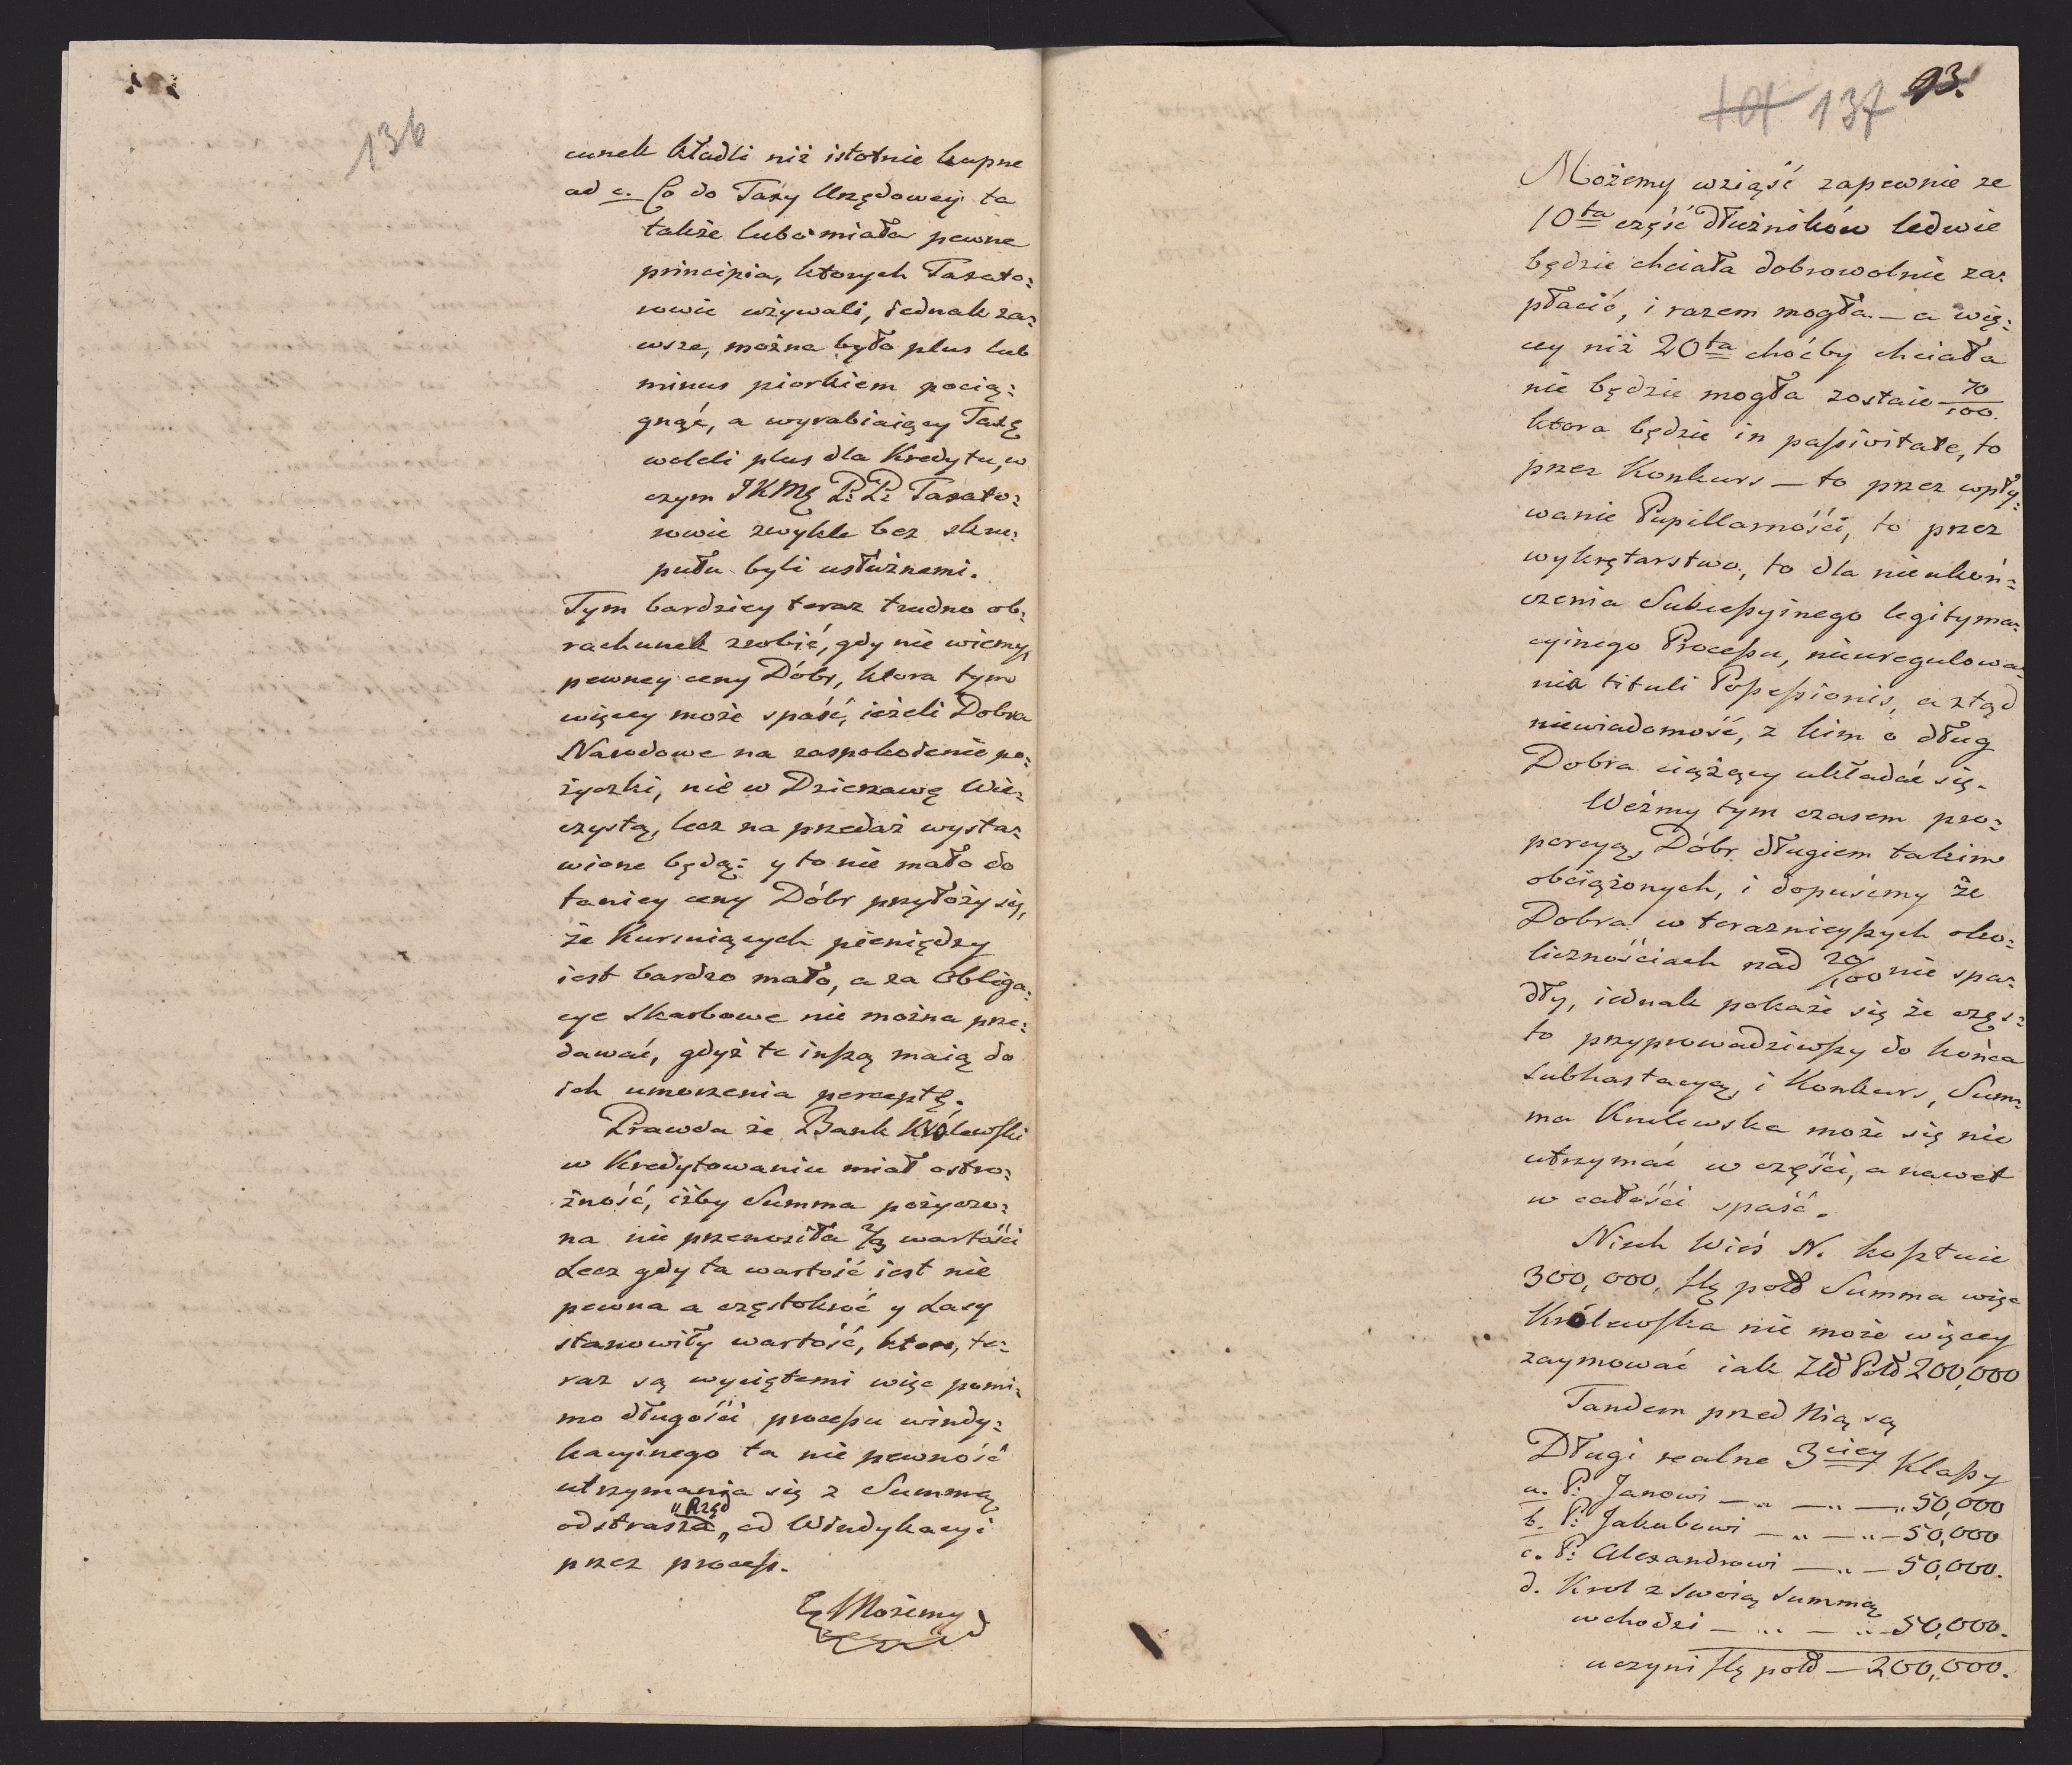 136
cunek kładli niż istotnie kupne
ad c. Co do Taxy Urzędowey ta
także lubo miała pewne
principia, ktorych Taxato:
rowie używali, iednak za:
wsze, można było plus lub
minus piorkiem pocią:
gnąć, a wyrabiaiący Taxę
woleli plus dla Kredytu, w
czym JKMę P: P: Taxato:
rowie zwykle bez skru:
pułu byli usłużnemi.
Tym bardziey teraz trudno ob:
rachunek zrobić, gdy nie wiemy
pewney ceny Dóbr, ktora tym
więcey może spaść, ieżeli Dobra
Narodowe na zaspokoienie po:
życzki, nie w Dzierzawę Wie:
czystą, lecz na przedaż wysta:
wione będą: y to nie mało do
taniey ceny Dóbr przyłoży się,
że Kursuiących pieniędzy
iest bardzo mało, a za Obliga:
cye Skarbowe nie można prze:
dawać, gdyż te inszą maią do
ich umorzenia perceptę.
Prawda że Bank Królewski
w Kredytowaniu miał ostro:
żność, iżby Summa pożyczo:
na nie przenosiła 2/3 wartości
Lecz gdy ta wartość iest nie
pewna a częstokroć y Lasy
stanowiły wartość, ktore, te:
raz są wyciętemi więc pomi:
mo długości processu windy:
kacyinego ta nie pewność
utrzymania się z Summą
odstrasza „Rząd„ od Windykacyi
przez process.
Możemy
101 137 93.
Możemy wziąść zapewnie ze
10ta część dłużników ledwie
będzie chciała dobrowolnie za:
płacić, i razem mogła — a wię:
cy niż 20ta choćby chciała
nie będzie mogła zostaie 70/100.
ktora będzie in passivitate, to
przez Konkurs — to przez wpły:
wanie Pupillarności, to przez
wykrętarstwo, to dla nieukoń:
czenia Sukcessyinego legityma:
cyinego Processu, nieuregulowa:
nia tituli Possessionis, a ztąd
niewiadomość, z kim o dług
Dobra ciążący układać się.
Weźmy tym czasem pro:
porcyą, Dóbr długiem takim
obciążonych, i dopuśćmy że
Dobra w teraznieyszych oko:
licznościach nad 20/100 nie spa:
dły, iednak pokaże się że częs:
to przyprowadziwszy do końca
subhastacyą, i Konkurs, Sum:
ma Krulewska może się nie
utrzymać w części, a nawet
w całości spaść.
Niech Wieś N. kosztuie
300,000, złł poll Summa więc
Królewska nie może więcey
zaymować iak Złł Poll 200,000
Tandem przed Nią są
Długi realne 3ciey Klassy
a. P: Janowi — „ — „ — „ 50,000
b. P: Jakubowi — „ — „ — 50,000
c. P: Alexandrowi — „ — 50,000.
d. Krol z swoią summą
wchodzi — „ — „ — 50,000.
uczyni złł poll — 200,000.